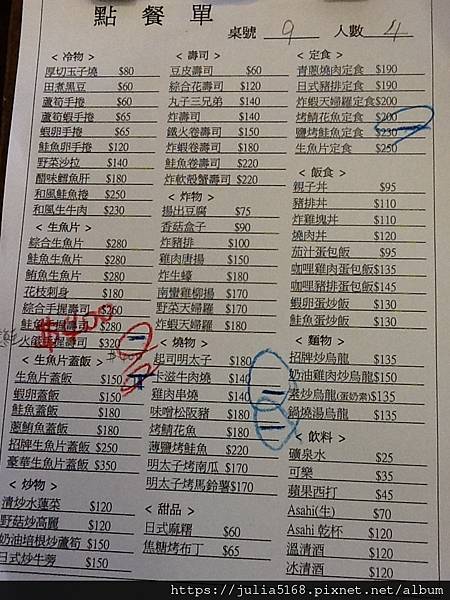 點 餐 單
桌號 9 人數 4
< 冷物 >
厚切玉子燒 $80
田煮黑豆 $60
蘆筍手捲 $60
蘆筍蝦手捲 $65
蝦卵手捲 $65
鮭魚卵手捲 $120
野菜沙拉 $140
醋味鱈魚肝 $180
和風鮭魚捲 $250
和風生牛肉 $230
< 生魚片 >
綜合生魚片 $280
鮭魚生魚片 $280
鮪魚生魚片 $280
花枝刺身 $180
綜合手握壽司 $260
鮭魚手握壽司 $280
火 手握壽司 $320
< 生魚片蓋飯 >
生魚片蓋飯 $150
蝦卵蓋飯 $150
鮭魚蓋飯 $180
蔥鮪魚蓋飯 $180
招牌生魚片蓋飯 $250
豪華生魚片蓋飯 $350
< 炒物 >
清炒水蓮菜 $120
野菇炒高麗 $120
奶油培根炒蘆筍 $150
日式炒牛蒡 $150
< 壽司 >
豆皮壽司 $60
綜合花壽司 $120
丸子三兄弟 $140
炸壽司 $140
鐵火卷壽司 $150
炸蝦卷壽司 $180
鮭魚卷壽司 $220
炸軟殼蟹壽司 $220
< 炸物 >
揚出豆腐 $75
香菇盒子 $90
炸豬排 $100
雞肉唐揚 $150
炸生蠔 $180
南蠻雞柳揚 $170
野菜天婦羅 $170
炸蝦天婦羅 $180
< 燒物 >
起司明太子 $180
卡滋牛肉燒 $140
雞肉串燒 $140
味噌松阪豬 $180
烤鯖花魚 $180
薄鹽烤鮭魚 $220
明太子烤南瓜 $170
明太子烤馬鈴薯$170
< 甜品 >
日式麻糬 $60
焦糖烤布丁 $65
< 定食 >
青蔥燒肉定食 $190
日式豬排定食 $190
炸蝦天婦羅定食$200
烤鯖花魚定食 $200
鹽烤鮭魚定食 $230
生魚片定食 $250
< 飯食 >
親子丼 $95
豬排丼 $110
炸雞塊丼 $110
燒肉丼 $120
茄汁蛋包飯 $95
咖哩雞肉蛋包飯$135
咖哩豬排蛋包飯$145
蝦卵蛋炒飯 $130
鮭魚蛋炒飯 $130
< 麵物 >
招牌炒烏龍 $135
奶油雞肉炒烏龍$150
素炒烏龍(蛋奶素)$135
鍋燒湯烏龍 $135
< 飲料 >
礦泉水 $25
可樂 $35
蘋果西打 $45
Asahi(生) $70
Asahi 乾杯 $120
溫清酒 $120
冰清酒 $120
https://julia5168.pixnet.net/album